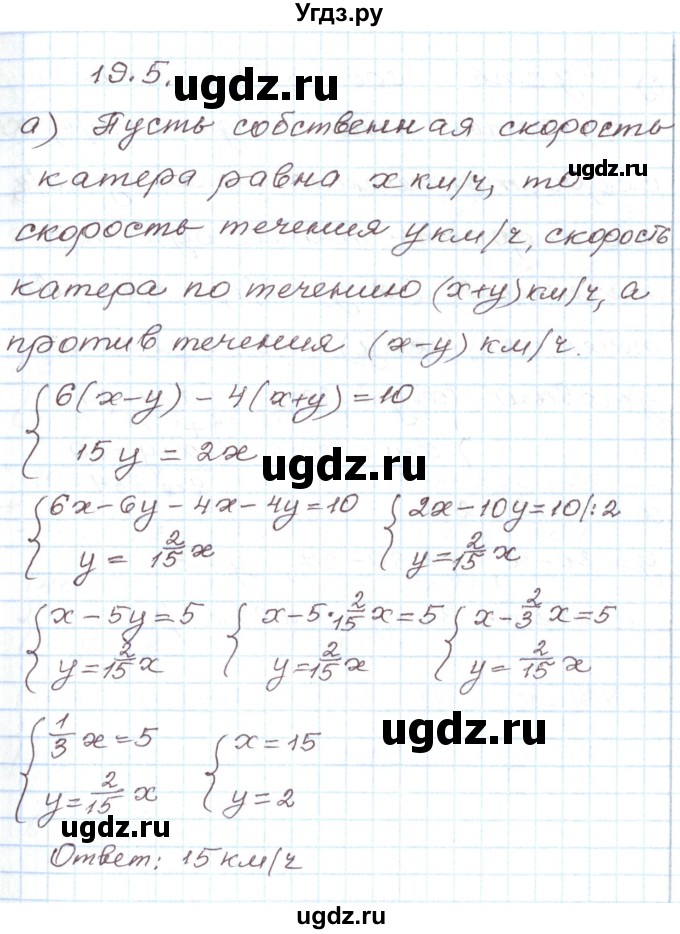 Угдз.ру
19.5.
ugdz.ru
а) Пусть собственная скорость
ugdz.ru
катера равна x км/ч, то
скорость течения y км/ч, скорость
катера по течению (x+y) км/ч, а
против течения (x-y) км/ч.
6(x-y) - 4(x+y) = 10
15y = 2x
ugdz.ru
6x-6y-4x-4y=10 2x-10y=10/:2
y = 2/15 x y = 2/15 x
x-5y=5 x-5·2/15 x=5 x-2/3 x=5
y=2/15 x y=2/15 x y=2/15 x
1/3 x=5 x=15
ugdz.ru
y=2/15 x y=2
ugdz.ru
Ответ: 15 км/ч
ugdz.ru